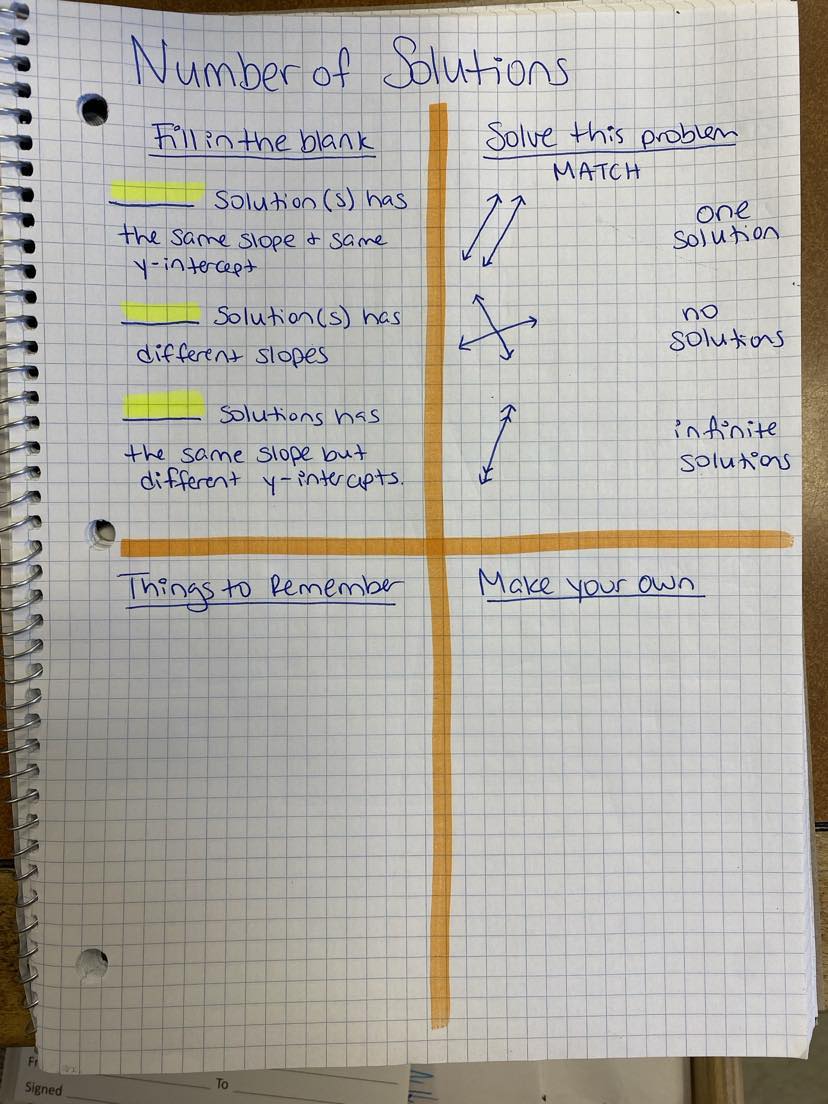 Number of Solutions
Fill in the blank
Solution(s) has
the same slope & same
y-intercept
Solution(s) has
different slopes
Solutions has
the same slope but
different y-intercepts.
Solve this problem
MATCH
one
solution
no
solutions
infinite
solutions
Things to Remember
Make your own
Signed
To